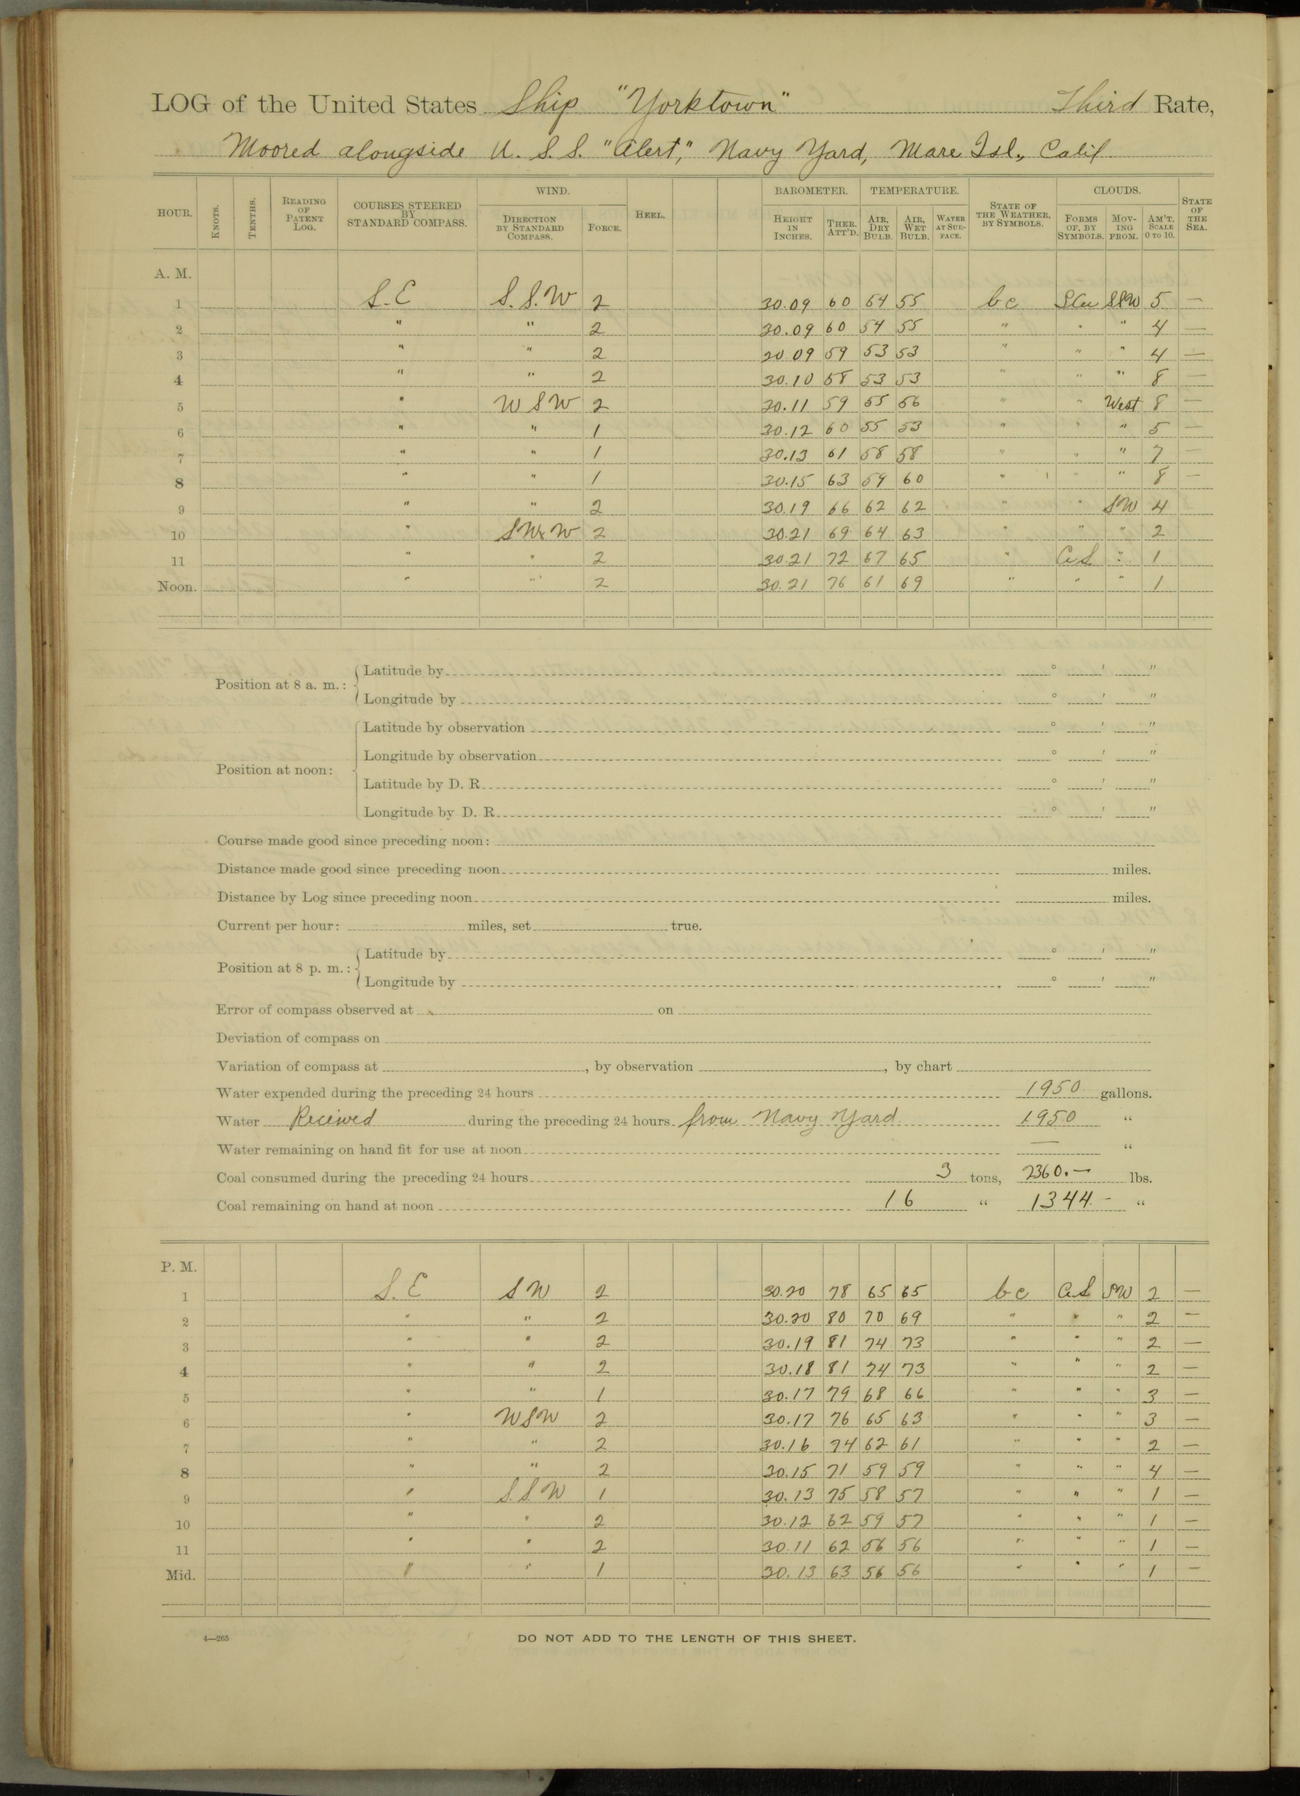 LOG of the United States Ship "Yorktown" Third Rate,
Moored alongside U. S. S. "Alert," Navy Yard, Mare Isl., Calif.
HOUR. KNOTS. TENTHS. READING OF PATENT LOG. COURSES STEERED BY STANDARD COMPASS. WIND. DIRECTION BY STANDARD COMPASS. FORCE. HEEL. BAROMETER. HEIGHT IN INCHES. THER. ATT'D. TEMPERATURE. AIR, DRY BULB. AIR, WET BULB. WATER AT SUR-FACE. STATE OF THE WEATHER, BY SYMBOLS. CLOUDS. FORMS OF, BY SYMBOLS. MOV-ING FROM. AM'T. SCALE 0 TO 10. STATE OF THE SEA.
A. M.
1 S.E S.S.W 2 30.09 60 54 55 bc SCu SSW 5 —
2 " " 2 30.09 60 54 55 " " " 4 —
3 " " 2 30 09 59 53 53 " " " 4 —
4 " " 2 30.10 58 53 53 " " " 8 —
5 " W S W 2 30.11 59 55 56 " " West 8 —
6 " " 1 30.12 60 55 53 " " " 5 —
7 " " 1 30.13 61 58 58 " " " 7 —
8 " " 1 30.15 63 59 60 " " " 8 —
9 " " 2 30.19 66 62 62 " " SW 4
10 " SWxW 2 30.21 69 64 63 " " " 2
11 " " 2 30.21 72 67 65 " CS " 1
Noon. " " 2 30.21 76 61 69 " " " 1
Position at 8 a. m.: Latitude by ° ' "
Longitude by ° ' "
Position at noon: Latitude by observation ° ' "
Longitude by observation ° ' "
Latitude by D. R. ° ' "
Longitude by D. R. ° ' "
Course made good since preceding noon:
Distance made good since preceding noon miles.
Distance by Log since preceding noon miles.
Current per hour: miles, set true.
Position at 8 p. m.: Latitude by ° ' "
Longitude by ° ' "
Error of compass observed at on
Deviation of compass on
Variation of compass at , by observation , by chart
Water expended during the preceding 24 hours 1950 gallons.
Water Received during the preceding 24 hours from Navy Yard 1950 "
Water remaining on hand fit for use at noon — "
Coal consumed during the preceding 24 hours 3 tons, 2360.— lbs.
Coal remaining on hand at noon 16 " 1344 - "
P. M.
1 S.E SW 2 30.20 78 65 65 bc CS SW 2 —
2 " " 2 30.20 80 70 69 " " " 2 —
3 " " 2 30.19 81 74 73 " " " 2 —
4 " " 2 30.18 81 74 73 " " " 2 —
5 " " 1 30.17 79 68 66 " " " 3 —
6 " WSW 2 30.17 76 65 63 " " " 3 —
7 " " 2 30.16 74 62 61 " " " 2 —
8 " " 2 30.15 71 59 59 " " " 4 —
9 " S.S.W 1 30.13 75 58 57 " " " 1 —
10 " " 2 30.12 62 59 57 " " " 1 —
11 " " 2 30.11 62 56 56 " " " 1 —
Mid. " " 1 30.13 63 56 56 " " " 1 —
4—265
DO NOT ADD TO THE LENGTH OF THIS SHEET.